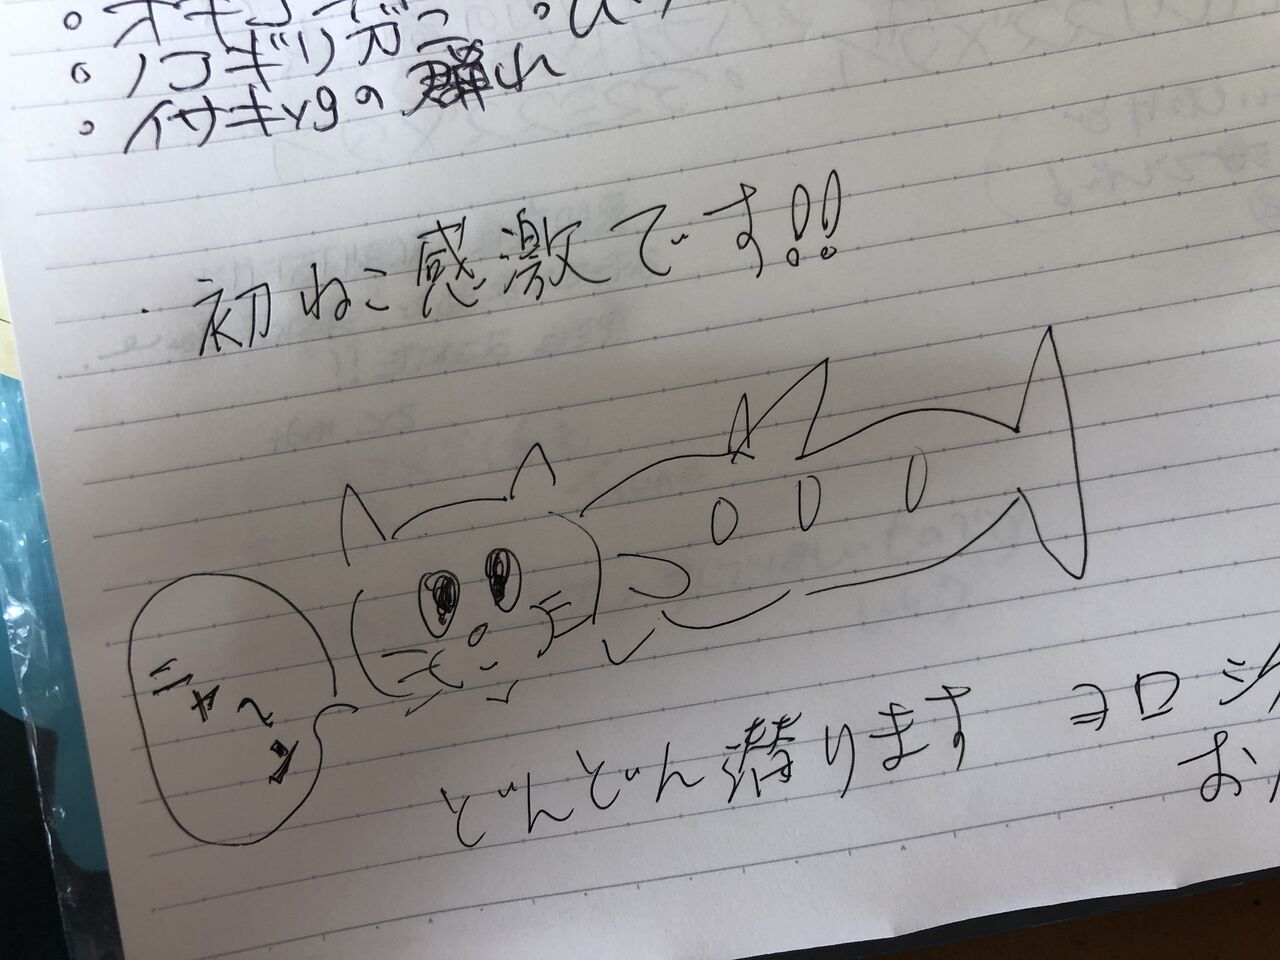 ・ノコギリガニ
・イサキygの群れ
・初ねこ感激です!!
シャーン
どんどん潜ります ヨロシ
お